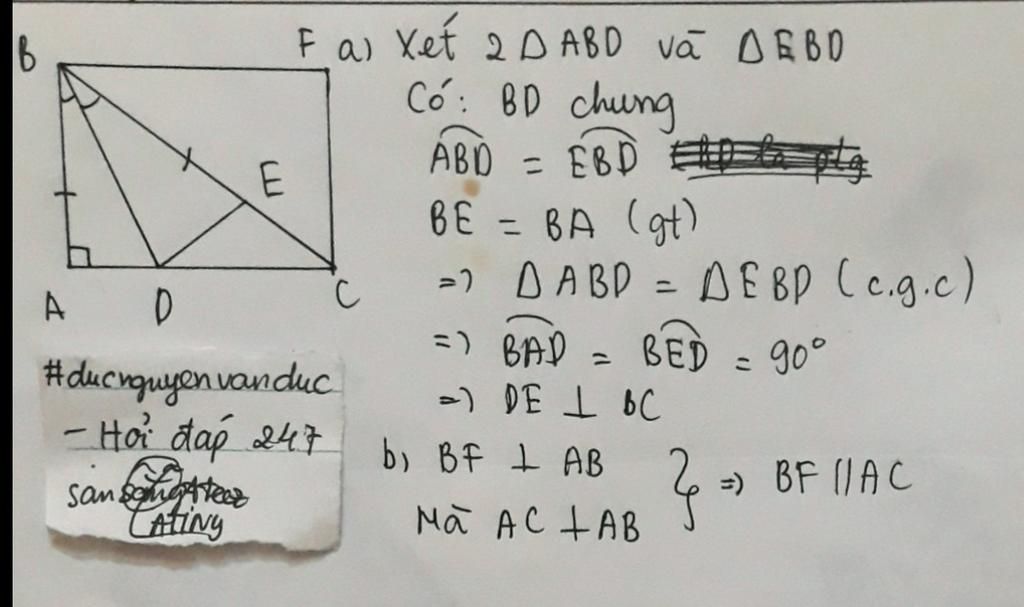 B
F
E
A
D
C
a) Xét 2 Δ ABD và Δ EBD
Có: BD chung
ABD = EBD
BE = BA (gt)
=> Δ ABD = Δ EBD (c.g.c)
=> BAD = BED = 90°
=> DE ⊥ BC
b) BF ⊥ AB
Mà AC ⊥ AB
} => BF // AC
#ducnguyenvanduc
- Hỏi đáp 247